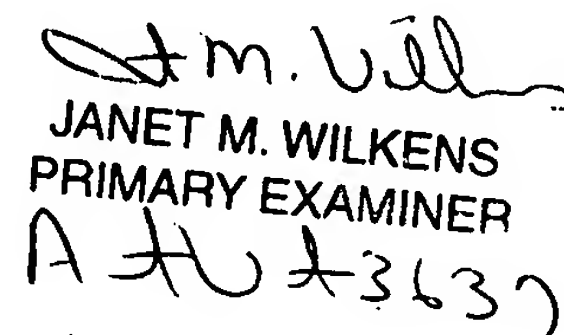 M. 
JANET M. WILKENS
PRIMARY EXAMINER
A 3637